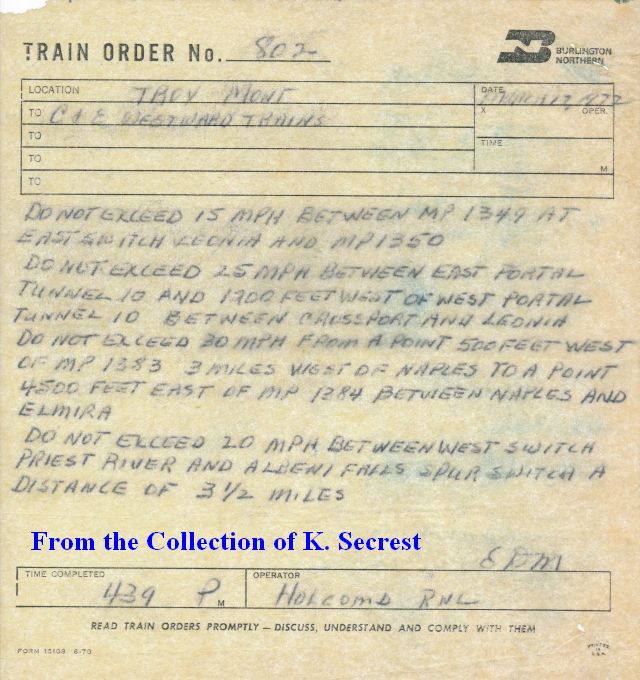 TRAIN ORDER No. 802
BURLINGTON
NORTHERN
LOCATION TROY MONT
DATE MARCH 17, 1977
TO C & E WESTWARD TRAINS
X OPER.
TO
TIME
TO
M
TO
DO NOT EXCEED 15 MPH BETWEEN MP 1349 AT
EAST SWITCH LEONIA AND MP 1350
DO NOT EXCEED 25 MPH BETWEEN EAST PORTAL
TUNNEL 10 AND 1700 FEET WEST OF WEST PORTAL
TUNNEL 10 BETWEEN CROSSPORT AND LEONIA
DO NOT EXCEED 30 MPH FROM A POINT 500 FEET WEST
OF MP 1383 3 MILES WEST OF NAPLES TO A POINT
4500 FEET EAST OF MP 1384 BETWEEN NAPLES AND
ELMIRA
DO NOT EXCEED 20 MPH BETWEEN WEST SWITCH
PRIEST RIVER AND ALBENI FALLS SPUR SWITCH A
DISTANCE OF 3 1/2 MILES
From the Collection of K. Secrest
EDM
TIME COMPLETED
OPERATOR
439 P M
HOLCOMB RNL
READ TRAIN ORDERS PROMPTLY — DISCUSS, UNDERSTAND AND COMPLY WITH THEM
FORM 15108 6-70
PRINTED
IN
U.S.A.